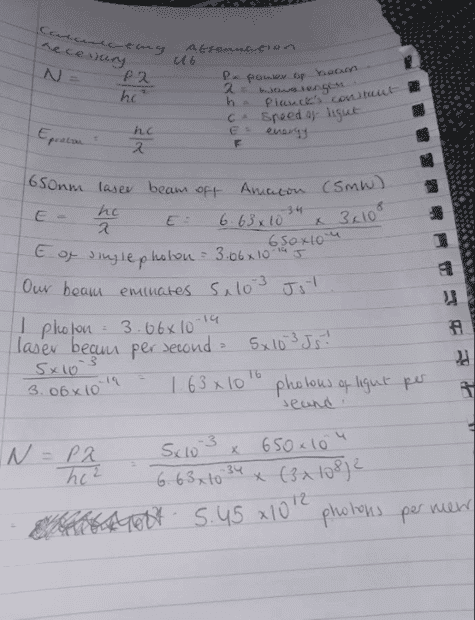 Calculating Attenuation
necessary U6
N = Pλ / hc² P = power of beam
λ = wavelength
h = Planck's constant
c = Speed of light
E photon = hc / λ E = energy
F
650nm laser beam off Amazon (5mW)
E = hc / λ E = 6.63x10^-34 x 3x10^8 / 650x10^-4
E of single photon = 3.06x10^-19 J
Our beam eminates 5x10^-3 Js^-1
1 photon = 3.06x10^-19
laser beam per second = 5x10^-3 Js^-1
5x10^-3 / 3.06x10^-19 = 1.63x10^16 photons of light per
second.
N = Pλ / hc² = 5x10^-3 x 650x10^-4 / 6.63x10^-34 x (3x10^8)²
= 5.45x10^12 photons per